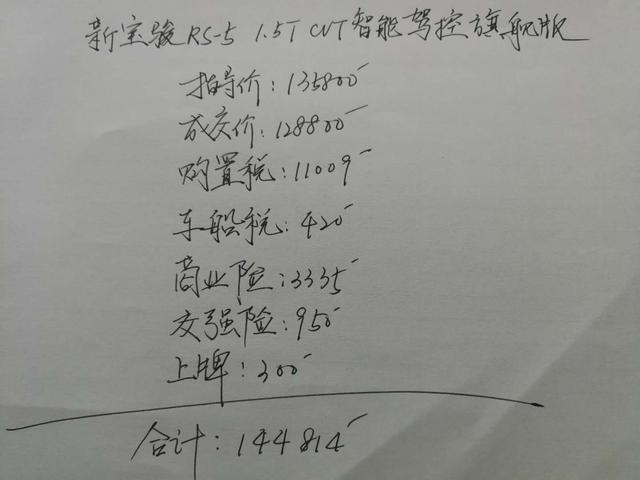 新宝骏RS-5 1.5T CVT智能驾控旗舰版
指导价:135800
成交价:128800
购置税:11009
车船税:420
商业险:3335
交强险:950
上牌:300
合计:144814